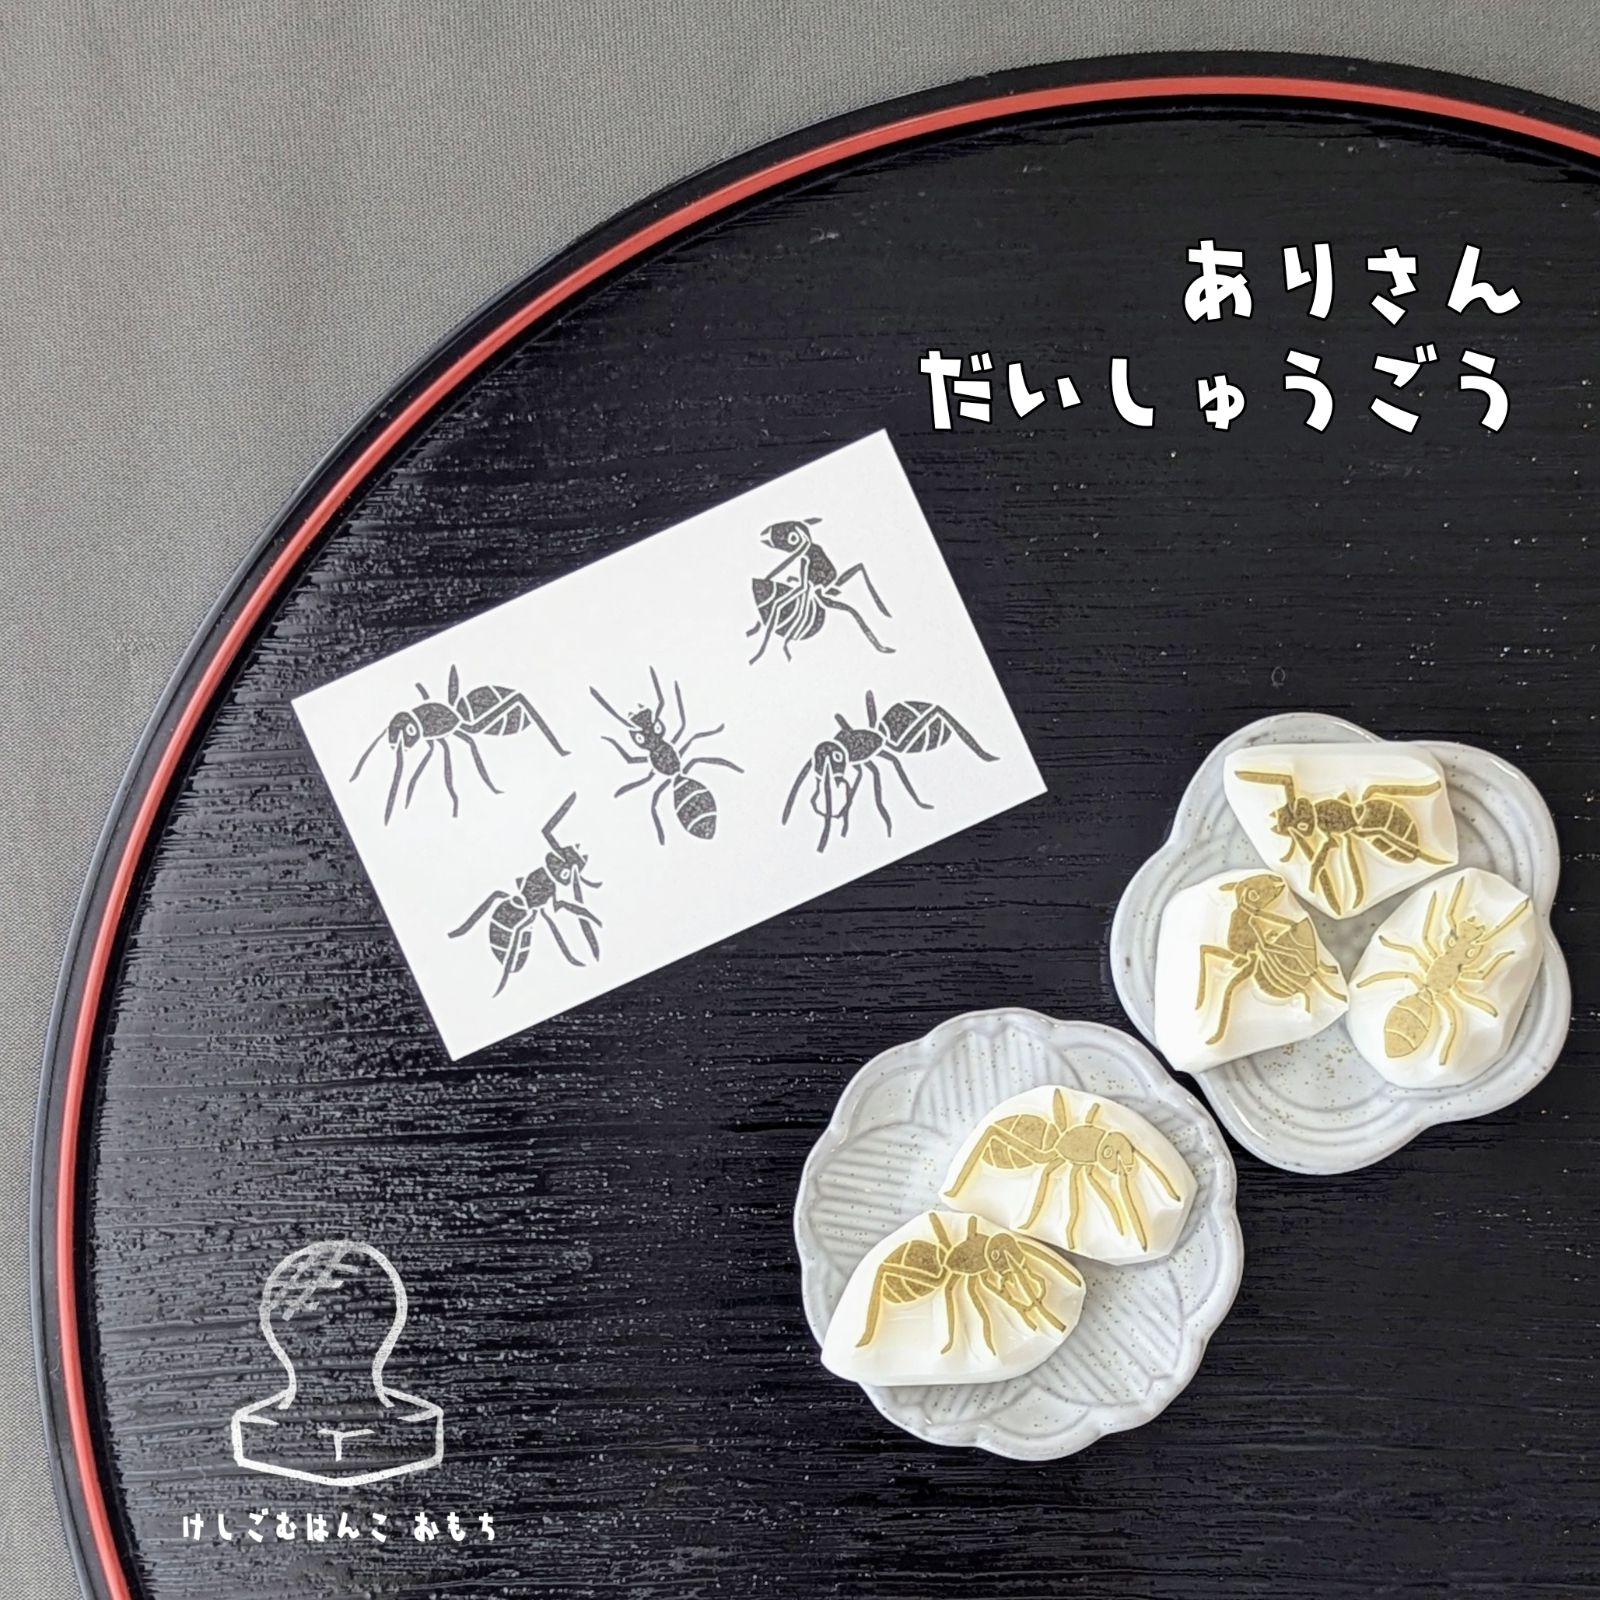 ありさん
だいしゅうごう
けしごむはんこ おもち